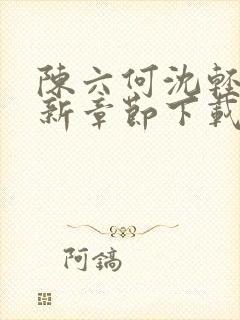 陳六何沈輕
新章節下載
阿鎬